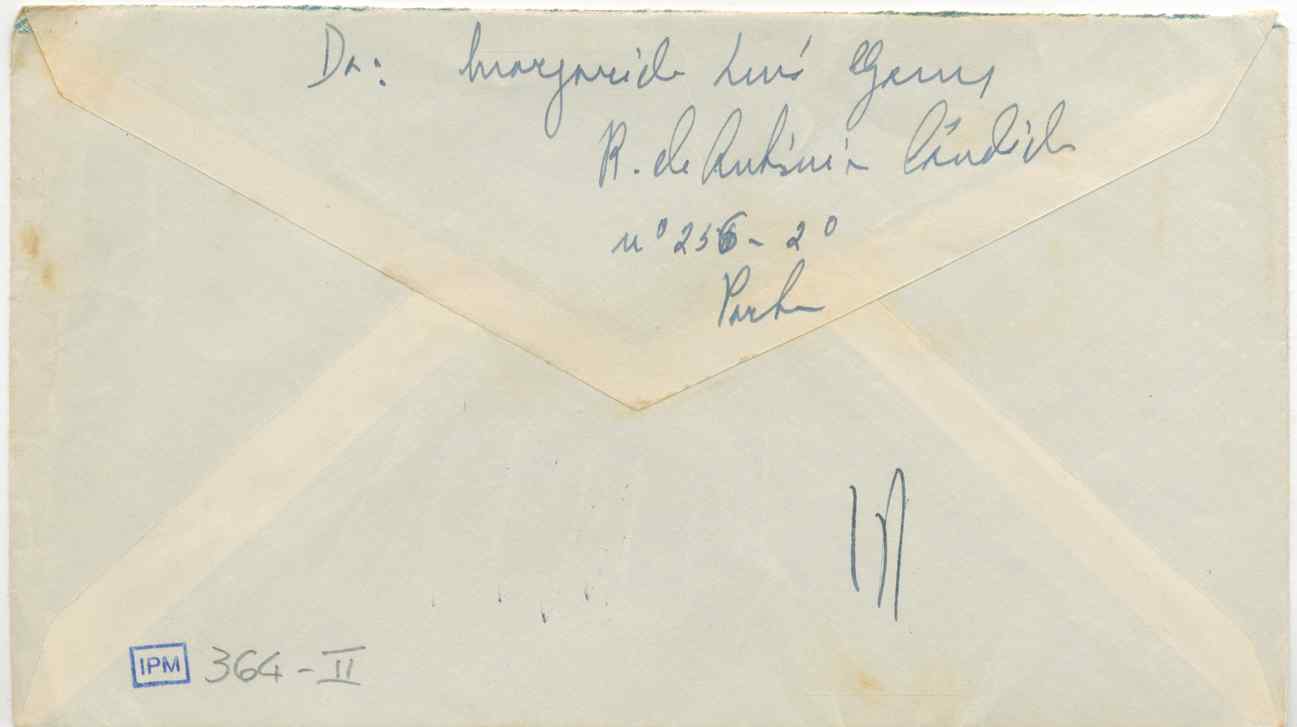 Da: Margarida Luís Gomes
R. de António Cândido
nº 256 - 2º
Porto
IPM 364-II